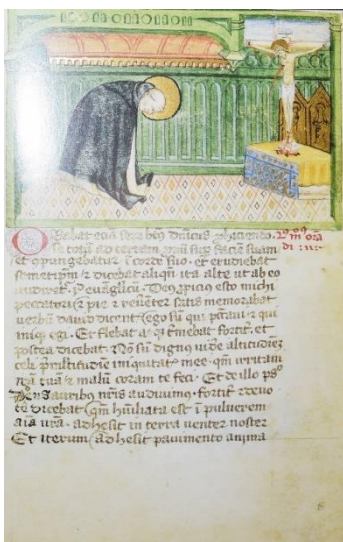 Orebat eciā sepe btūs dnicus
se totū ad terram sup faciē suam
et cōpungebatur ī corde suo · et erubebat
semetipm 7 dicebat aliqn ita alte ut ab eo
audiret evāgelicū · esto michi
peccatori pie 7 reverēter satis memorabat
verbū david dicent ego sū qui peccavi et qui
iniq egi · Et flebat ac gemebat fortit · et
postea dicebat · Nō sū dignus videre altitudiez
celi p multitudie iniquitat mee · qm irritavi
irā tuā 7 malū coram te feci · Et de illo pso
Deus auribus nris audivimus · fortit 7 devo
te dicebat qm huiliata est ī pulverem
aia nra · adhesit in terra venter noster
Et iterum adhesit pavimento anima